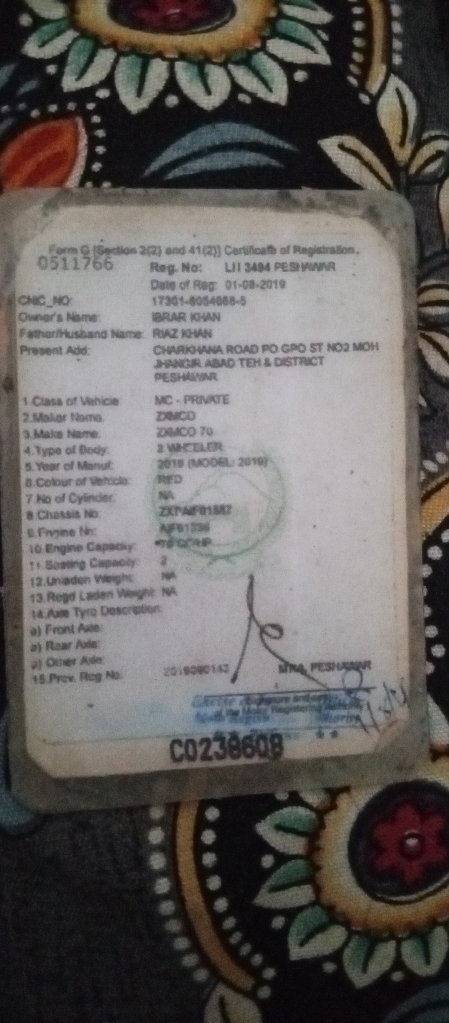 Form G [Section 2(2) and 41(2)] Certificate of Registration.
0511766
Reg. No: LII 3494 PESHAWAR
Date of Reg: 01-08-2019
CNIC_NO:
Owner's Name: IBRAR KHAN
Father/Husband Name: RIAZ KHAN
Present Add: CHARKHANA ROAD PO GPO ST NO2 MOH
JHANGIR ABAD TEH & DISTRICT
PESHAWAR
1.Class of Vehicle MC - PRIVATE
2.Maker Name. ZXMCO
3.Make Name: ZXMCO 70
4.Type of Body: 2 WHEELER
5.Year of Manuf: (MODEL: 2019)
6.Colour of Vehicle: RED
7.No of Cylinder: NA
8.Chassis No:
9.Engine No:
10.Engine Capacity:
11.Seating Capacity: 2
12.Unladen Weight: NA
13.Regd Laden Weight: NA
14.Axle Tyro Description:
a) Front Axle:
a) Rear Axle:
a) Other Axle:
15.Prev. Reg No. MRA, PESHAWAR
C0238608